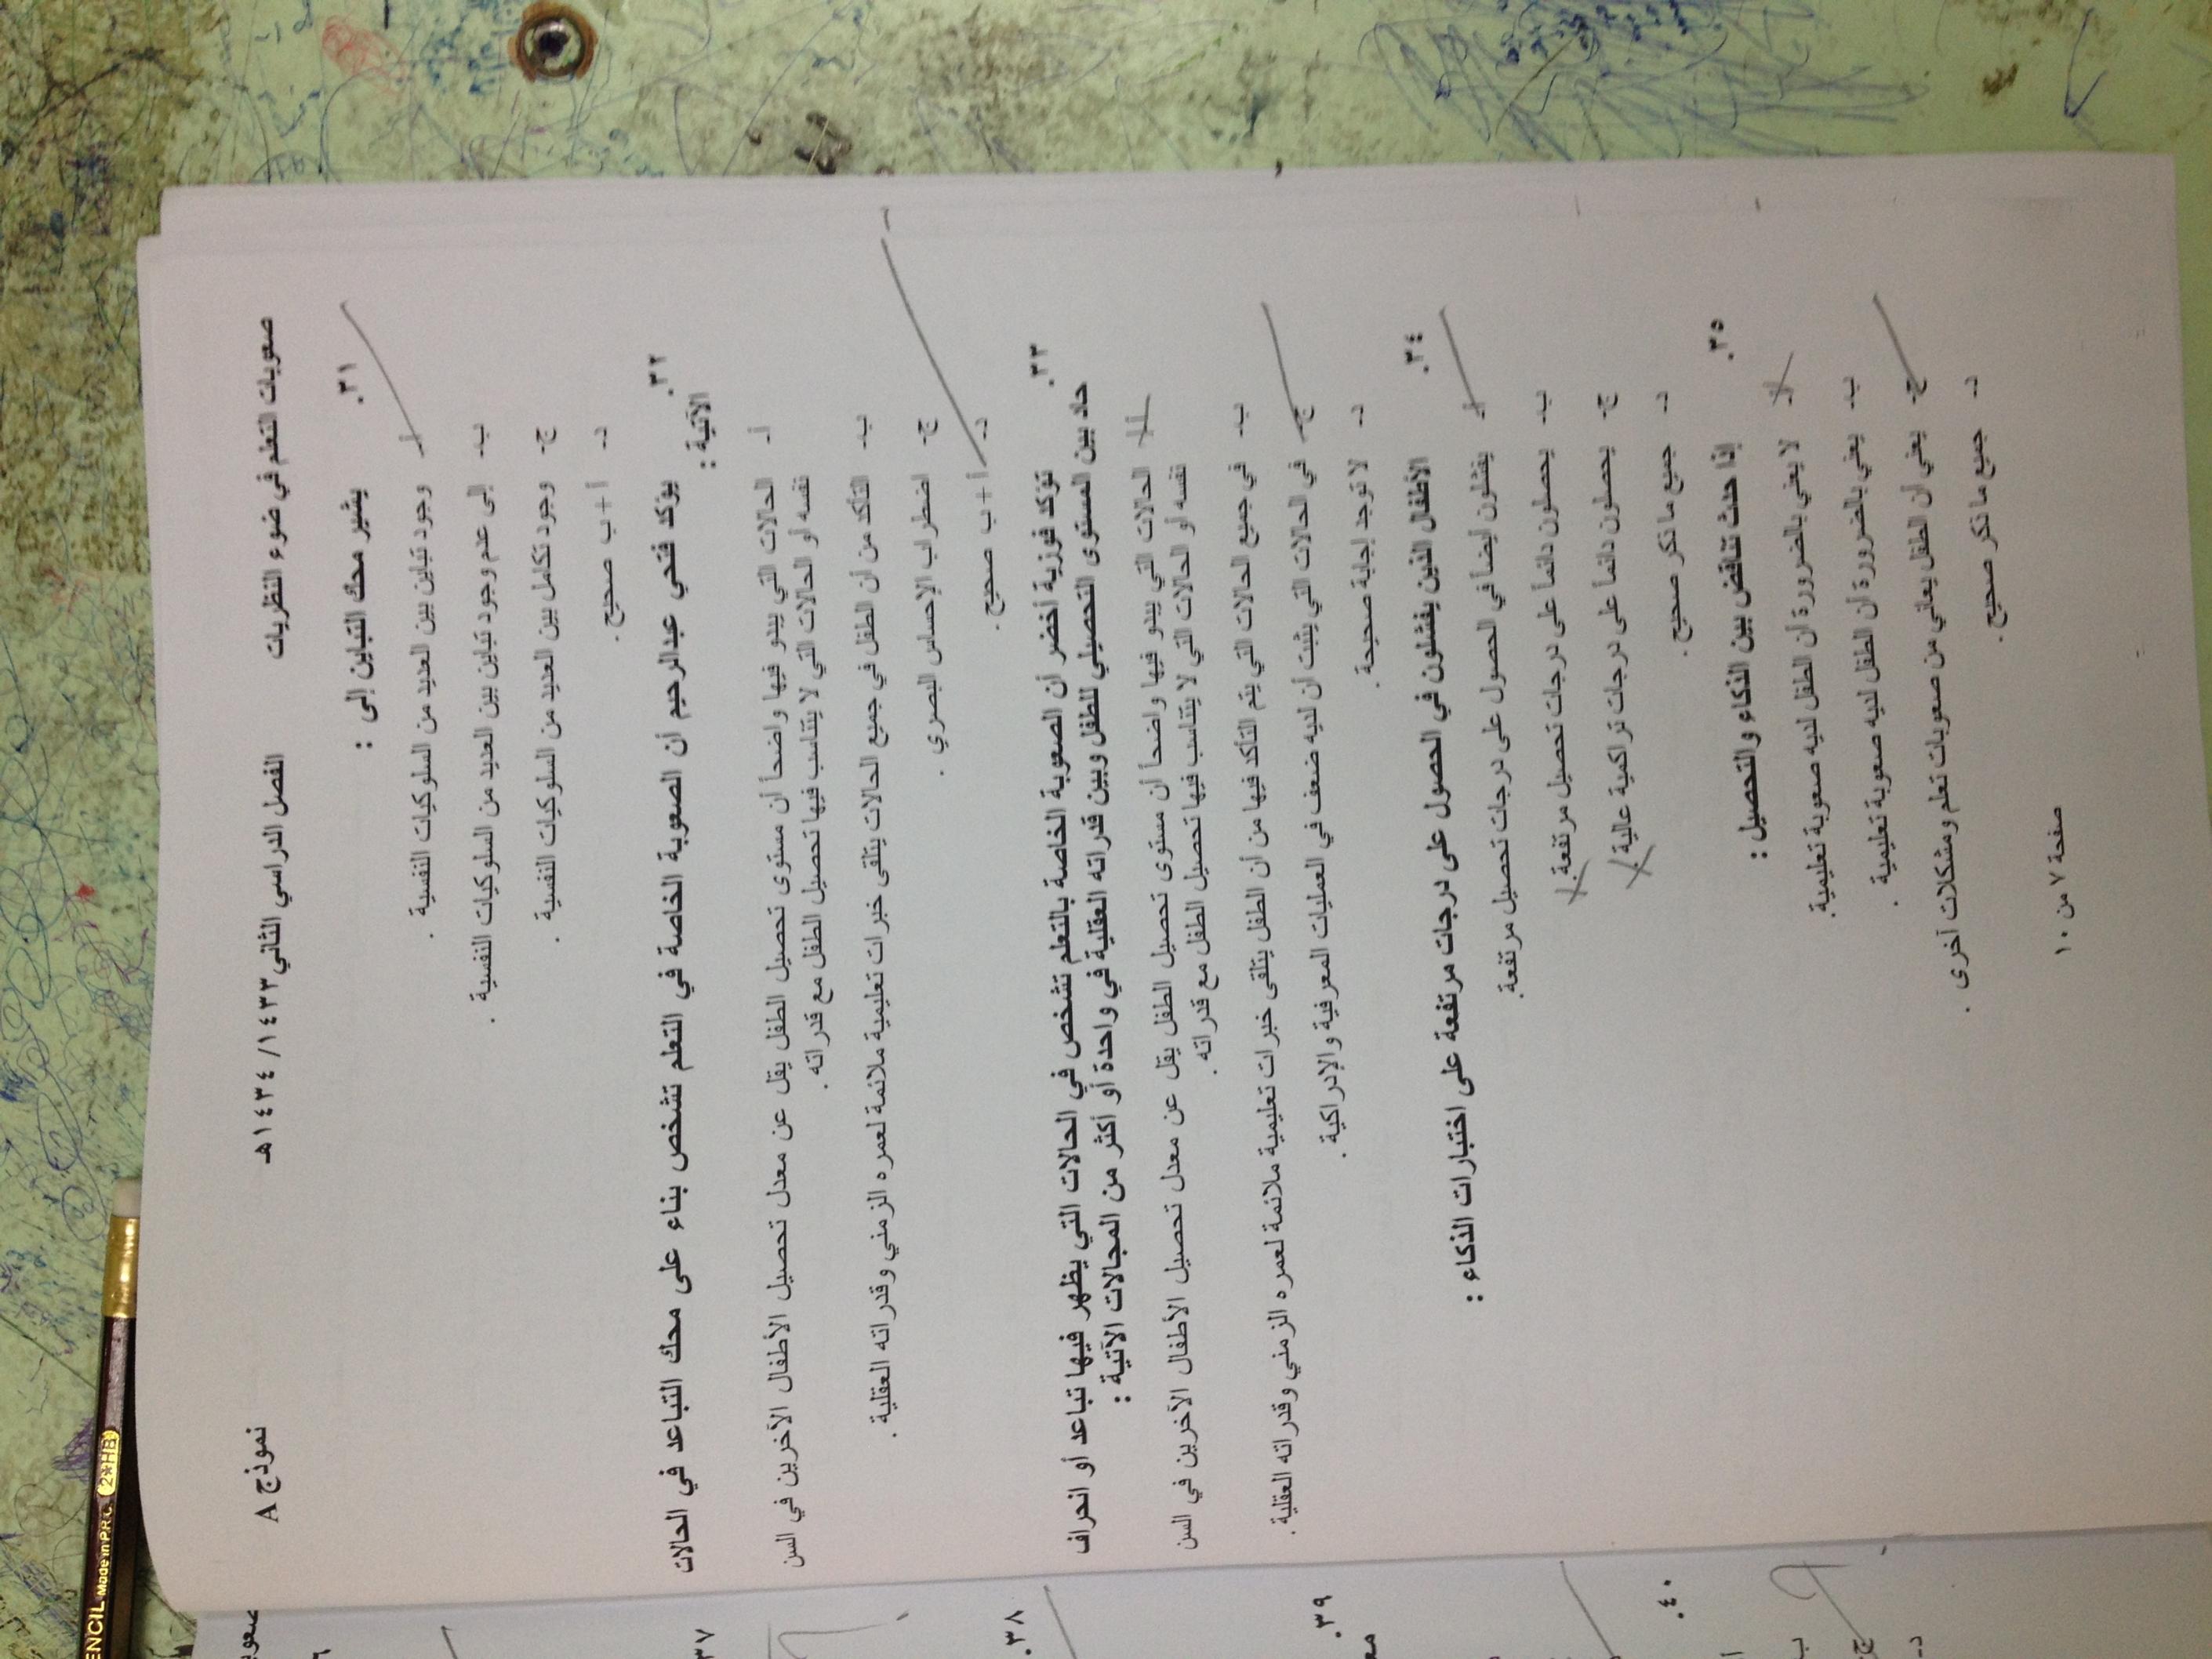 صعوبات التعلم في ضوء النظريات الفصل الدراسي الثاني ١٤٣٣/ ١٤٣٤هـ نموذج A
٣١. يشير محك التباين إلى :
أ- وجود تباين بين العديد من السلوكيات النفسية .
ب- إلى عدم وجود تباين بين العديد من السلوكيات النفسية .
ج- وجود تكامل بين العديد من السلوكيات النفسية .
د- أ + ب صحيح .
٣٢. يؤكد فتحي عبدالرحيم أن الصعوبة الخاصة في التعلم تشخص بناء على محك التباعد في الحالات
الآتية :
أ- الحالات التي يبدو فيها واضحاً أن مستوى تحصيل الطفل يقل عن معدل تحصيل الأطفال الآخرين في السن
نفسه أو الحالات التي لا يتناسب فيها تحصيل الطفل مع قدراته .
ب- التأكد من أن الطفل في جميع الحالات يتلقى خبرات تعليمية ملائمة لعمره الزمني وقدراته العقلية .
ج- اضطراب الإحساس البصري .
د- أ + ب صحيح .
٣٣. تؤكد فوزية أخضر أن الصعوبة الخاصة بالتعلم تشخص في الحالات التي يظهر فيها تباعد أو انحراف
حاد بين المستوى التحصيلي للطفل وبين قدراته العقلية في واحدة أو أكثر من المجالات الآتية :
أ- الحالات التي يبدو فيها واضحاً أن مستوى تحصيل الطفل يقل عن معدل تحصيل الأطفال الآخرين في السن
نفسه أو الحالات التي لا يتناسب فيها تحصيل الطفل مع قدراته .
ب- في جميع الحالات التي يتم التأكد فيها من أن الطفل يتلقى خبرات تعليمية ملائمة لعمره الزمني وقدراته العقلية .
ج- في الحالات التي يثبت أن لديه ضعف في العمليات المعرفية والإدراكية .
د- لا توجد إجابة صحيحة .
٣٤. الأطفال الذين يفشلون في الحصول على درجات مرتفعة على اختبارات الذكاء :
أ- يفشلون أيضاً في الحصول على درجات تحصيل مرتفعة .
ب- يحصلون دائماً على درجات تحصيل مرتفعة .
ج- يحصلون دائماً على درجات تراكمية عالية .
د- جميع ما ذكر صحيح .
٣٥. إذا حدث تناقض بين الذكاء والتحصيل :
أ- لا يعني بالضرورة أن الطفل لديه صعوبة تعليمية .
ب- يعني بالضرورة أن الطفل لديه صعوبة تعليمية .
ج- يعني أن الطفل يعاني من صعوبات تعلم ومشكلات أخرى .
د- جميع ما ذكر صحيح .
صفحة ٧ من ١٠
ENCIL Made in P.R.C. 2*HB
٣٧
٣٨.
٣٩.
٤٠.
ب
ج
د-